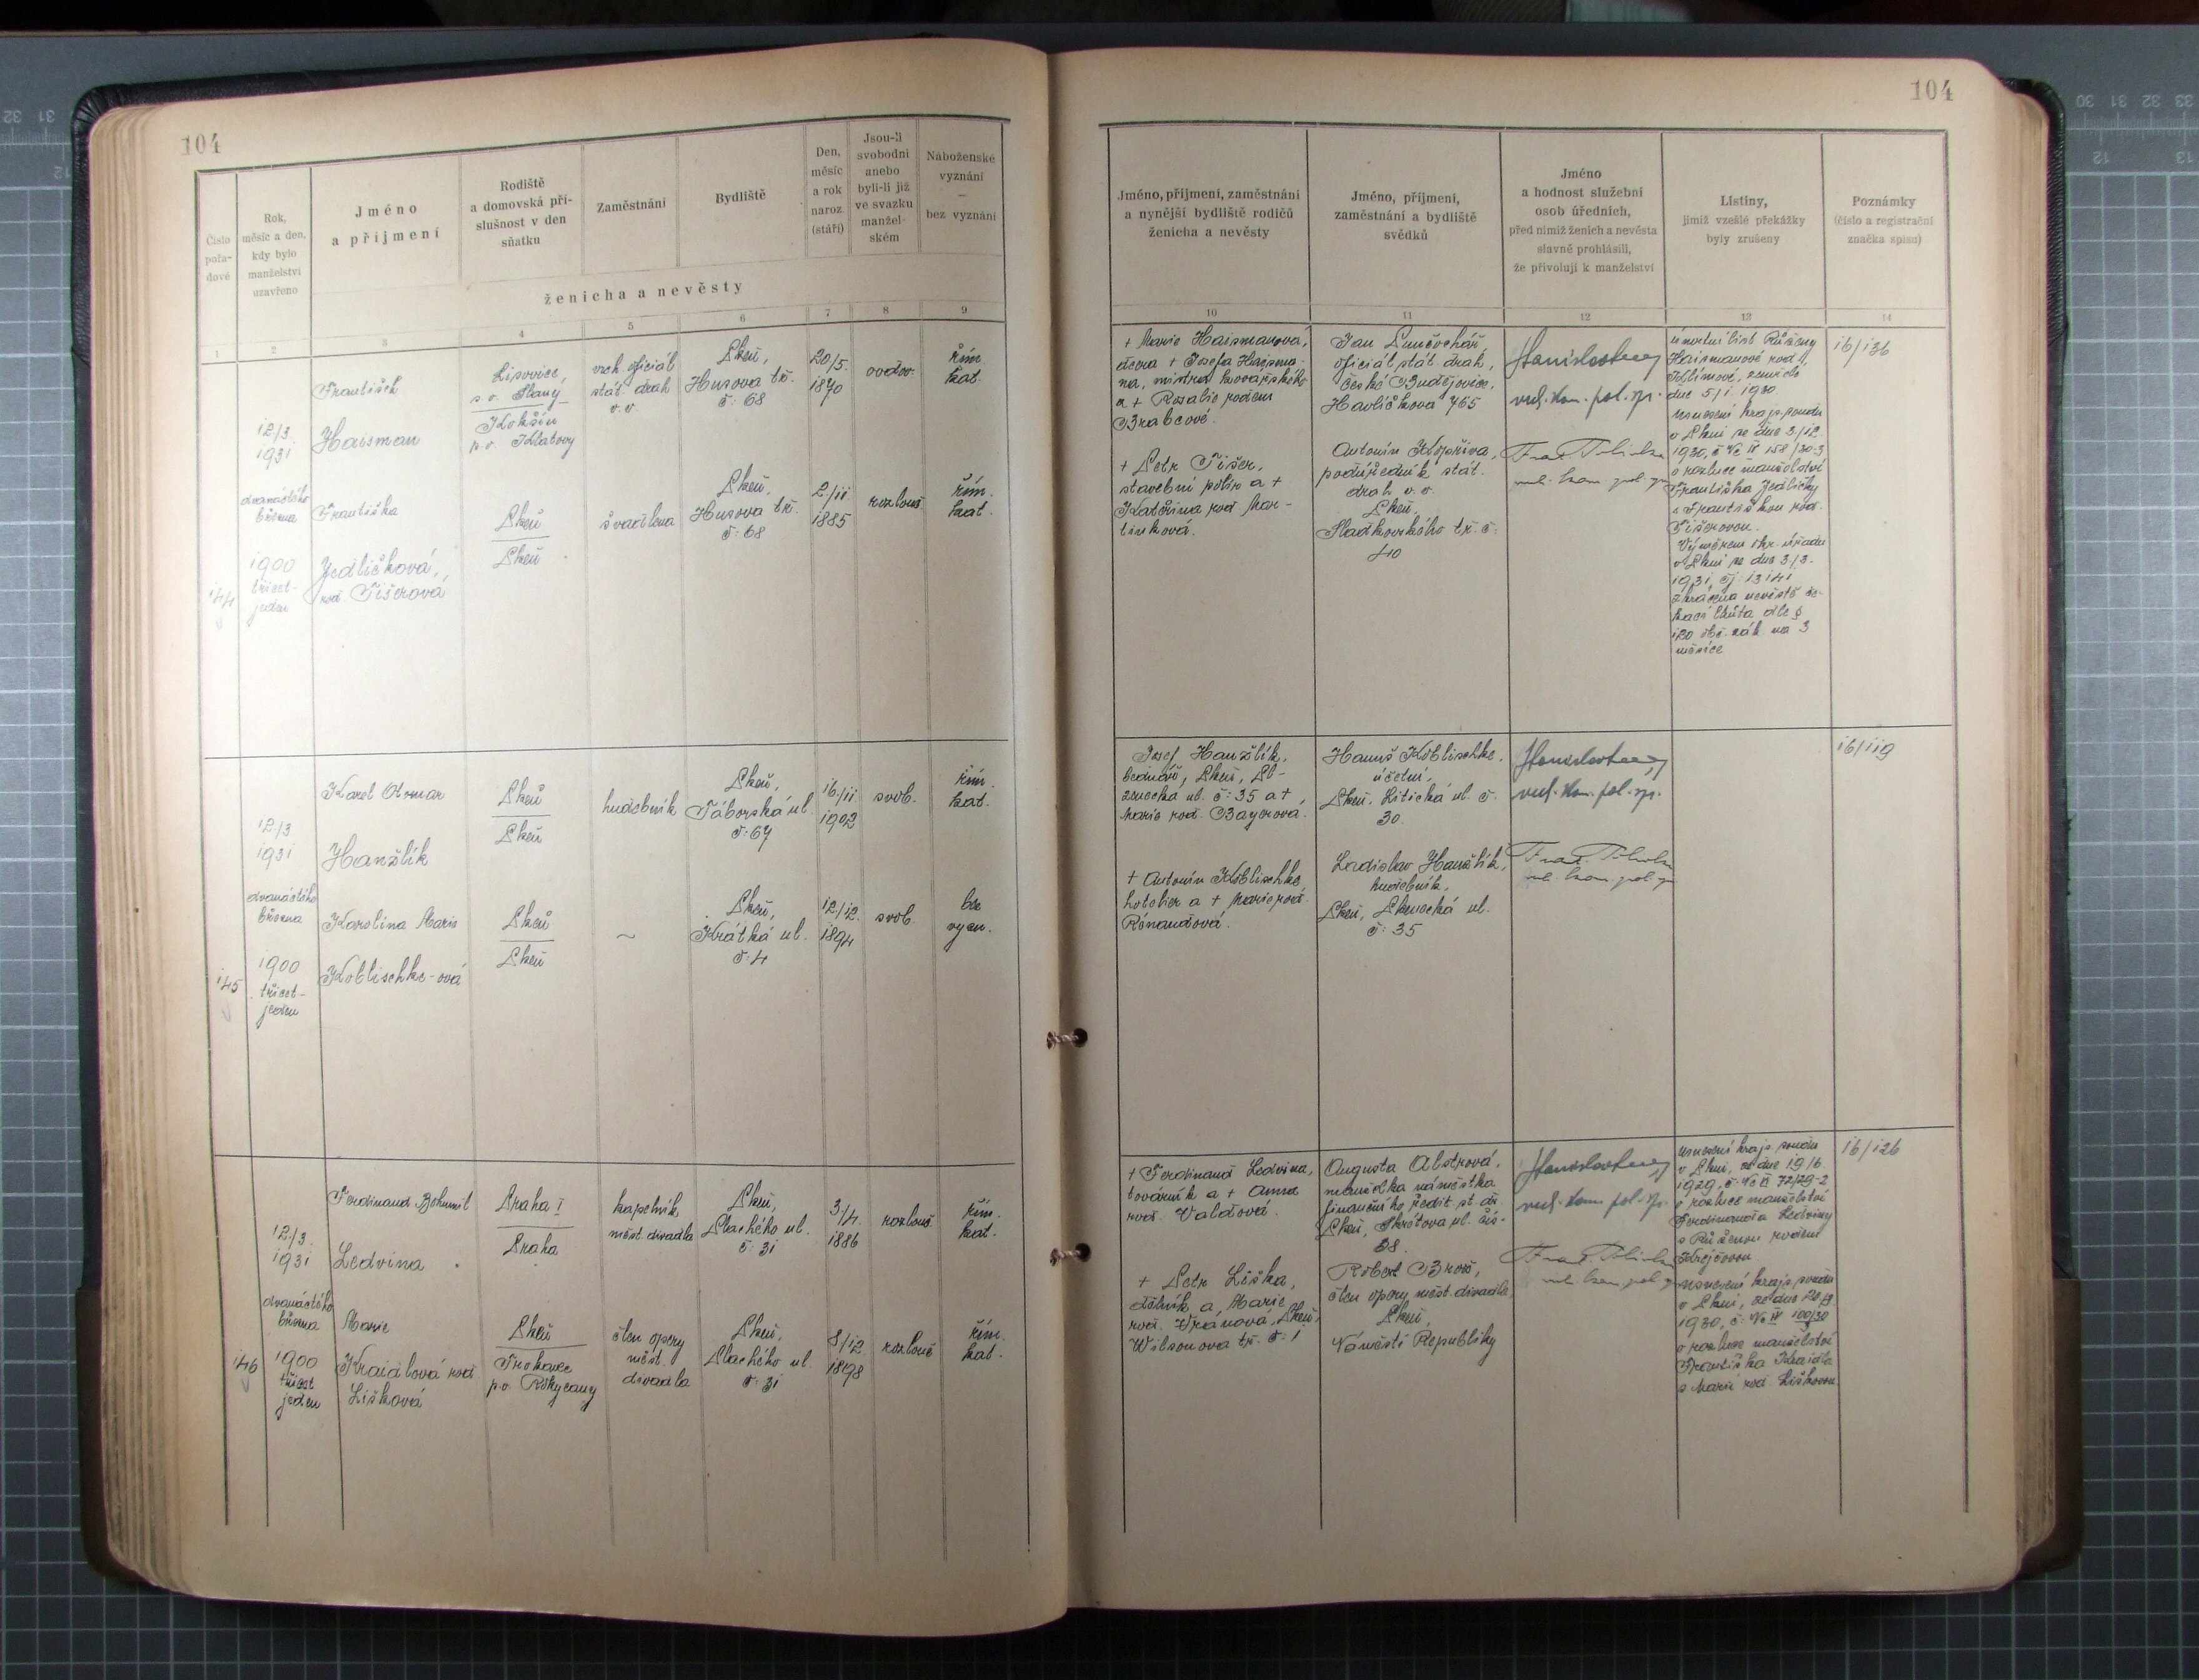 104
Číslo
pořa-
dové
Rok,
měsíc a den,
kdy bylo
manželství
uzavřeno
Jméno
a příjmení
Rodiště
a domovská pří-
slušnost v den
sňatku
Zaměstnání
Bydliště
Den,
měsíc
a rok
naroz.
(stáří)
Jsou-li
svobodni
anebo
byli-li již
ve svazku
manžel-
ském
Náboženské
vyznání
—
bez vyznání
ženicha a nevěsty
1 2 3 4 5 6 7 8 9
144
12/3
1931
dvanáctého
března
1900
třicet-
jeden
František
Haisman
Lisovice,
s o. Slaný
Kokšín
p.o. Klatovy
vrch. oficiál
stát. drah
v.v.
Plzeň,
Husova tř.
č: 68
20/5.
1870
ovdov.
řím.
kat.
Františka
Jedličková,
rod. Tišerová
Plzeň
Plzeň
švadlena
Plzeň,
Husova tř.
č: 68
2/11
1885
rozlouč.
řím.
kat.
145
12/3
1931
dvanáctého
března
1900
třicet-
jeden
Karel Otmar
Hanžlík
Plzeň
Plzeň
hudebník
Plzeň,
Táborská ul.
č: 67
16/11
1902
svob.
řím.
kat.
Karolina Marie
Koblischke-ová
Plzeň
Plzeň
~
Plzeň,
Krátká ul.
č: 4
12/12.
1894
svob.
bez
vyzn.
146
12./3.
1931
dvanáctého
března
1900
třicet
jeden
Ferdinand Bohumil
Ledvina
Praha I
Praha
kapelník
měst. divadla
Plzeň,
Plachého ul.
č: 31
3/4.
1886
rozlouč.
řím.
kat.
Marie
Kraidlová rod
Lišková
Plzeň
Trokavec
p.o. Rokycany
člen opery
měst.
divadla
Plzeň,
Plachého ul.
č: 31
8/12.
1898
rozlouč
řím.
kat.
104
Jméno, příjmení, zaměstnání
a nynější bydliště rodičů
ženicha a nevěsty
Jméno, příjmení,
zaměstnání a bydliště
svědků
Jméno
a hodnost služební
osob úředních,
před nimiž ženich a nevěsta
slavně prohlásili,
že přivolují k manželství
Listiny,
jimiž vzešlé překážky
byly zrušeny
Poznámky
(číslo a registrační
značka spisu)
10 11 12 13 14
+ Marie Haismanová,
dcera + Josefa Haisma-
na, mistra kovářského
a + Rozalie rodem
Brabcové.
+ Petr Tišer,
stavební polír a +
Kateřina rod Mar-
tínková.
Jan Slunéčko
oficiál stát drah,
České Budějovice,
Havlíčkova 765
Antonín Kopřiva,
podúředník stát.
drah v.v.
Plzeň,
Sladkovského tř. č:
40
vrch. kom. pol. spr.
úmrtní list Růženy
Haismanové rod.
Klímové, zemřelé
dne 5/1. 1930.
Usnesení krajs. soudu
v Plzni ze dne 3/12
1930, č Nc II 158/30-3
o rozluce manželství
Františka Jedličky
s Františkou rod.
Tišerovou.
Výměrem okr. úřadu
v Plzni ze dne 3/3.
1931, čj: 13141
zkrácena nevěstě če-
kací lhůta dle §
120 obč. zák. na 3
měsíce
16/136
Josef Hanžlík,
bednář, Plzeň, Pl-
zenecká ul. č: 35 a +
Marie rod. Bayerová.
+ Antonín Koblischke
hotelier a + Marie rod.
Rónandová.
Hanuš Koblischke,
účetní,
Plzeň, Litická ul. č.
30.
Ladislav Hanžlík,
hudebník,
Plzeň, Plzenecká ul.
č: 35
vrch. kom. pol. spr.
16/119
+ Ferdinand Ledvina,
továrník a + Anna
rod. Valdová.
+ Petr Liška,
dělník a Marie
rod. Vranová, Plzeň,
Wilsonova tř. č: 1
Augusta Albstrová,
manželka náměstka
finančního ředit. st. dr.
Plzeň, Skrétova ul. čís-
38.
Robert Brož,
člen opery měst. divadla
Plzeň,
Náměstí Republiky
vrch. kom. pol. spr.
Usnesení krajs soudu
v Plzni, ze dne 19/6.
1929, č: Nc II 72/29-2
o rozluce manželství
Ferdinanda Ledviny
s Růženou rodem
Krejčovou
Usnesení krajs. soudu
v Plzni, ze dne 20/9.
1930, č: Nc II 100/30
o rozluce manželství
Františka Kraidla
s Marií rod. Liškovou
16/126